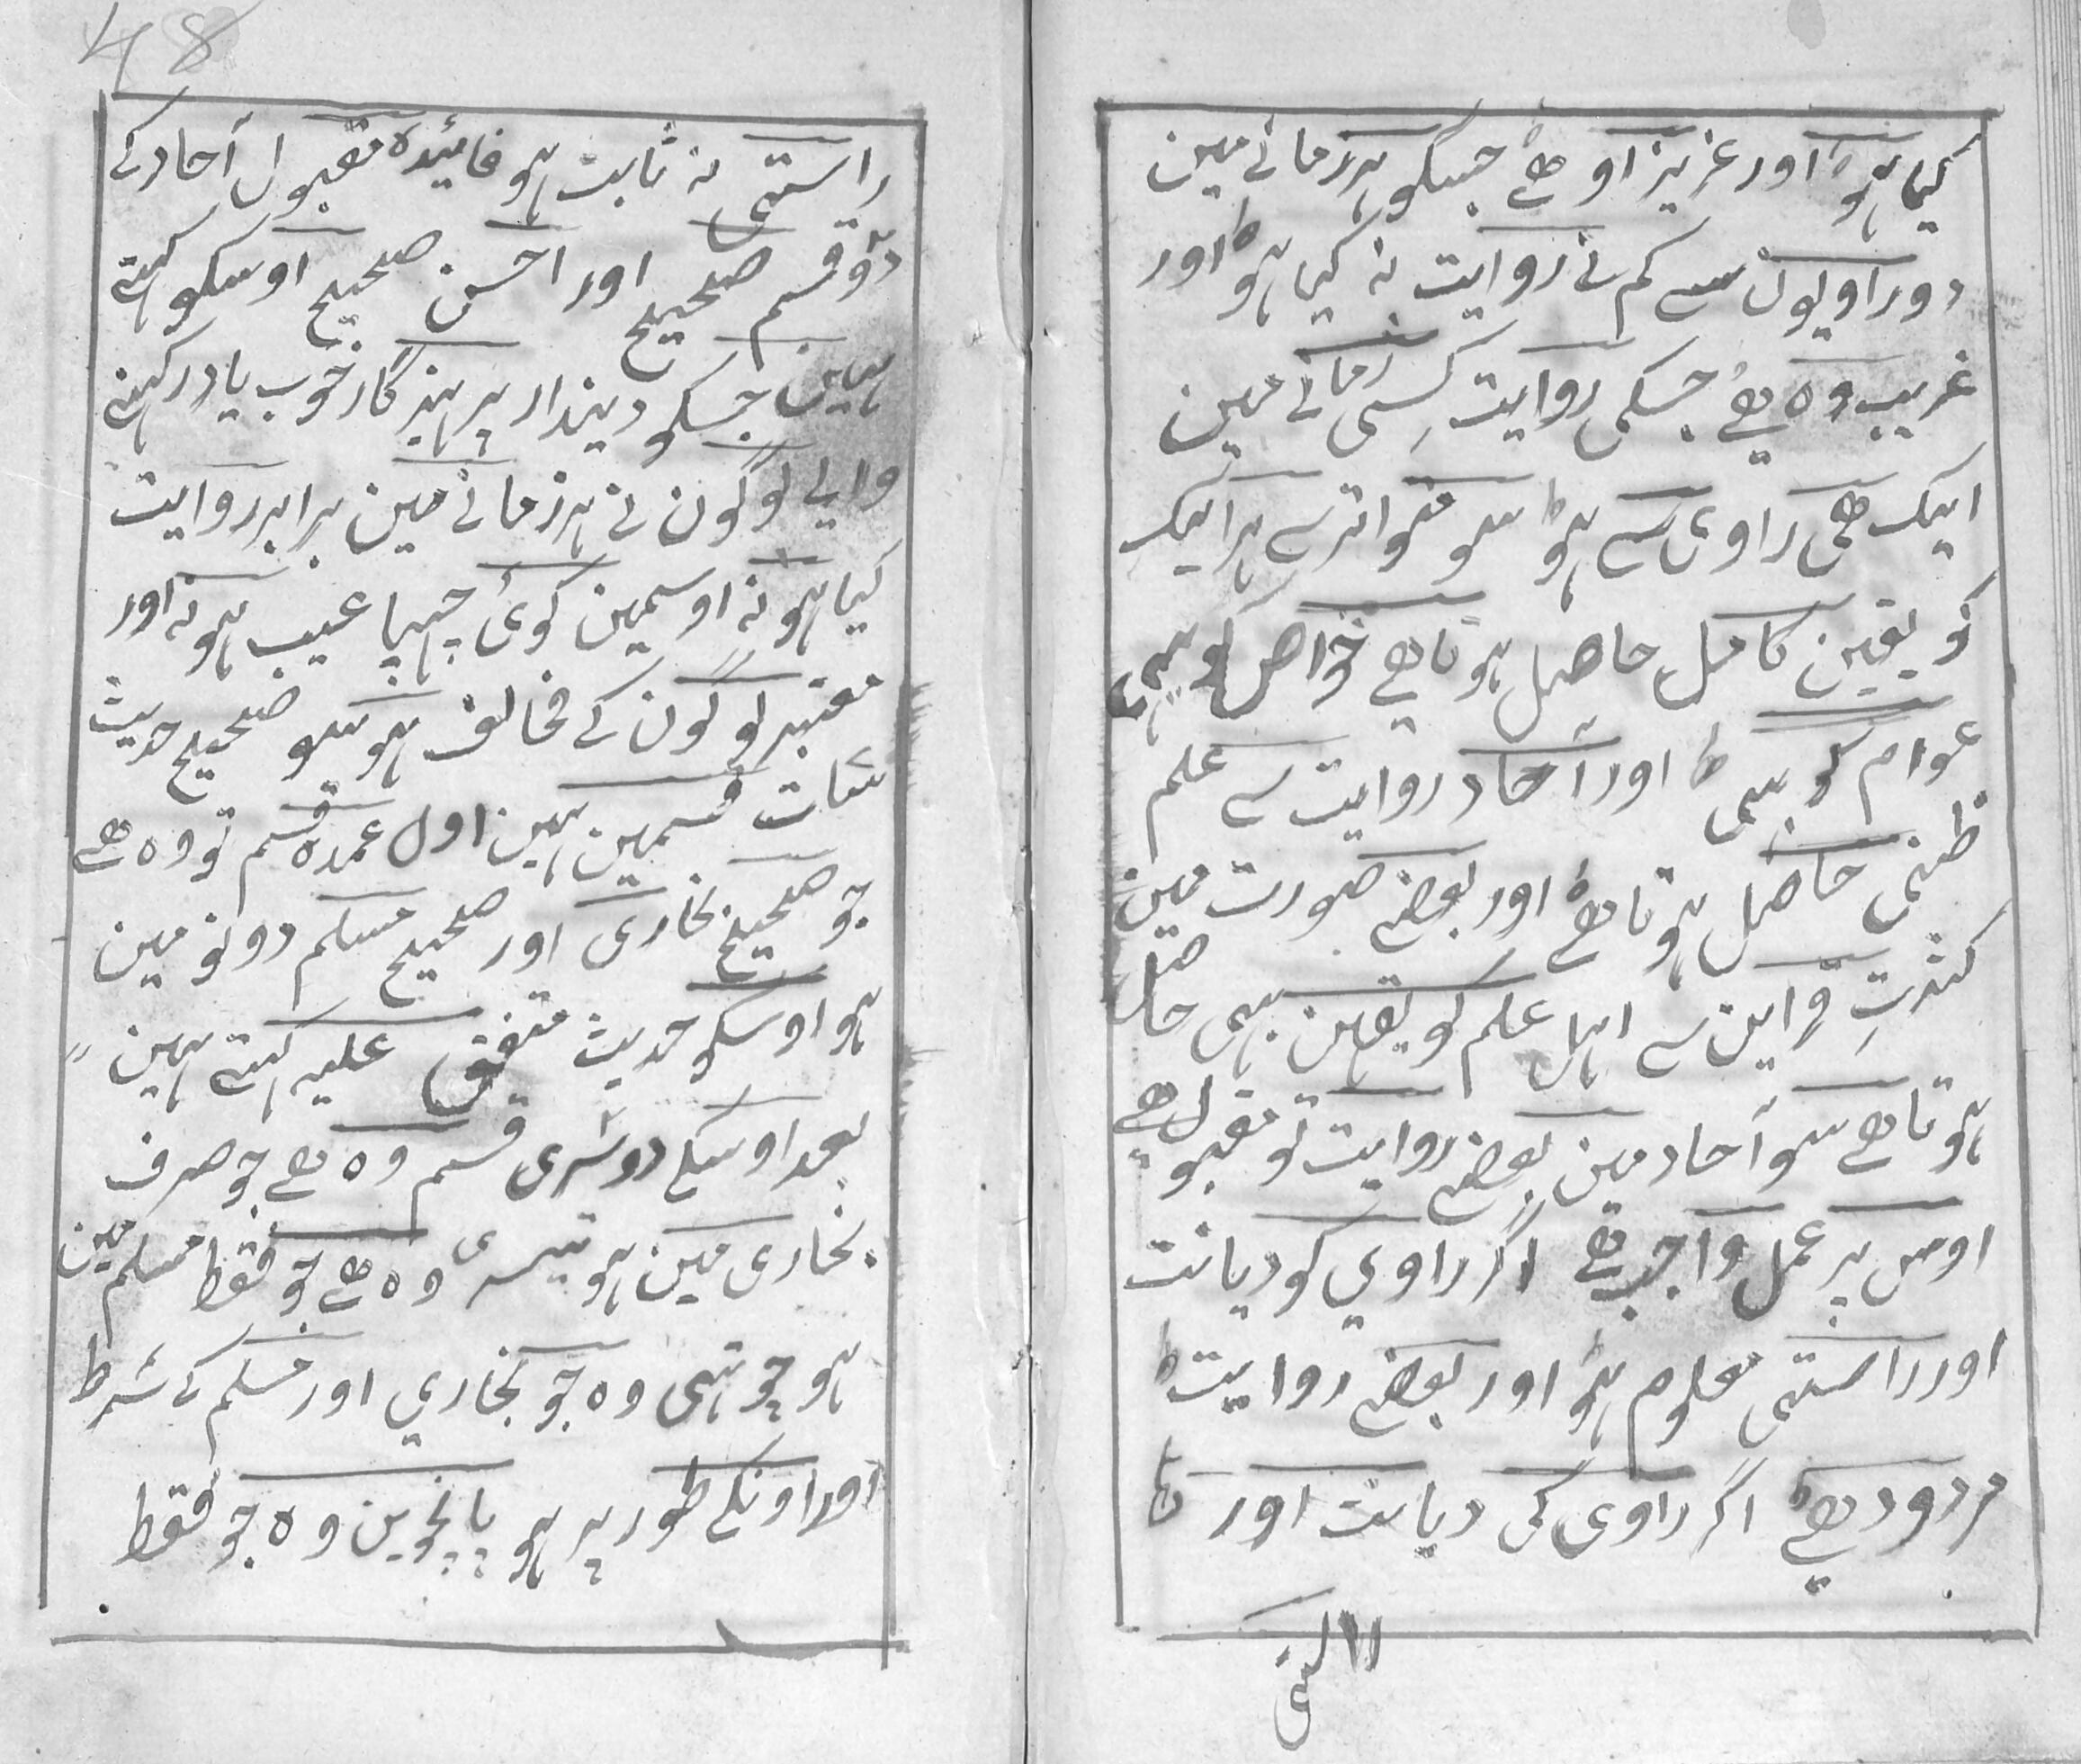 کیا ہو اور عزیز او ھے جسکو ہر زمانے مین
دو راویون سے کم نے روایت نہ کیا ہو اور
غریب وہ ھے جسکی روایت کسی زمانے مین
ایک ھی راوی سے ہو سو متواتر سے ہر ایک
کو یقین کامل حاصل ہوتا ھے خواص کو بہی
عوام کو بہی اور آحاد روایت سے علم
ظنی حاصل ہوتا ھے اور بعضے صورت مین
کثرتِ قراین سے اہل علم کو یقین بہی حاصل
ہوتا ھے سو آحاد مین بعضے روایت تو مقبول ھے
اوس پر عمل واجب ھے اگر راوي کو دیانت
اور راستی معلوم ہو اور بعضے روایت
مردود ھے اگر راوی کی دیانت اور
48
راستی نہ ثابت ہو فائیدہ مقبول آحاد کے
دو قسم صحیح اور احسن صحیح اوسکو کہتے
ہین جسکو دیندار پرہیزگار خوب یاد رکہنے
والے لوگون نے ہر زمانے مین برابر روایت
کیا ہو نہ اوسمین کوئ چہپا عیب ہو نہ اور
معتبر لوگون کے مخالف ہو سو صحیح حدیث
سات قسمین ہین اول عمدہ قسم تو وہ ھے
جو صحیح بخاری اور صحیح مسلم دونو مین
ہو اوسکو حدیث متفق علیہ کہتے ہین
بعد اوسکے دوسری قسم وہ ھے جو صرف
بخاری مین ہو تیسری وہ ھے جو فقط مسلم مین
ہو چوتہی وہ جو بخاري اور مسلم کے شرط
اور اونکے طور پر ہو پانچوین وہ جو فقط